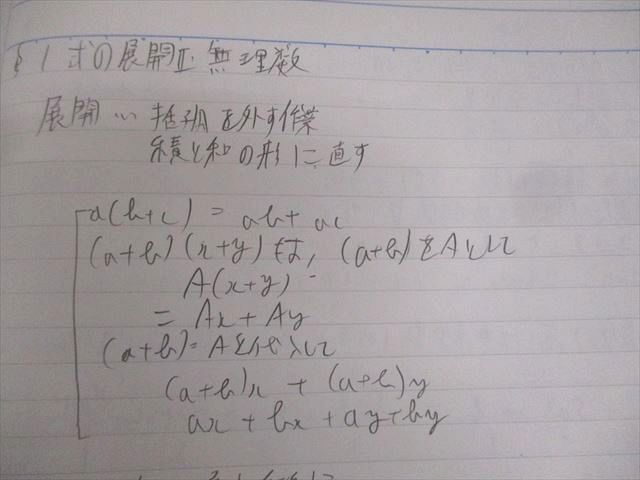 §1 式の展開II 無理数
展開… 括弧を外す作業
積を和の形に直す
a(b+c) = ab + ac
(a+b)(x+y)は, (a+b)をAとして
A(x+y)
= Ax + Ay
(a+b)=Aを代入して
(a+b)x + (a+b)y
ax + bx + ay + by